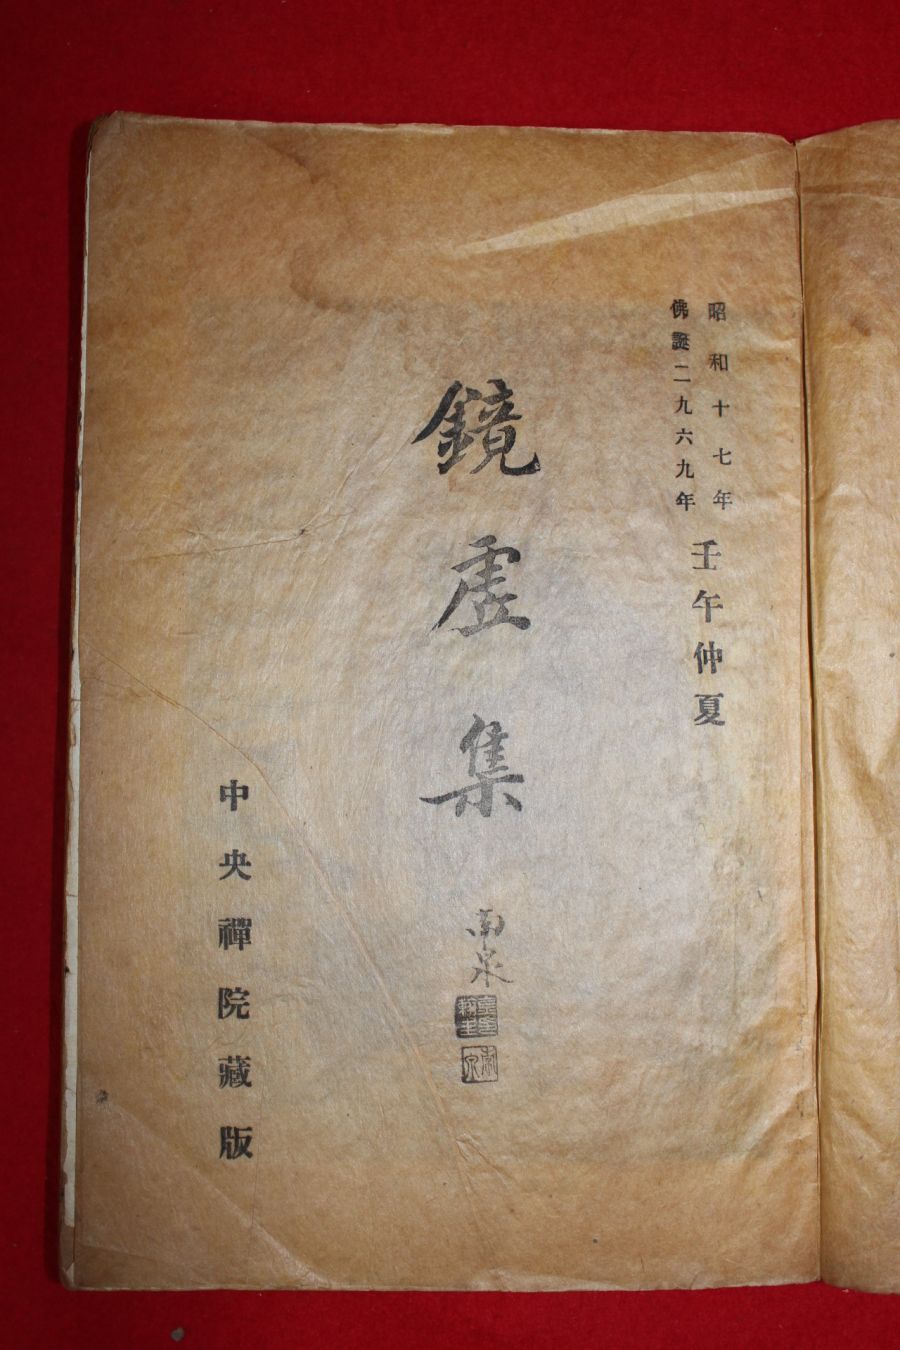 昭和十七年
佛誕二九六九年
壬午仲夏
鏡虛集
南泉
中央禪院藏版